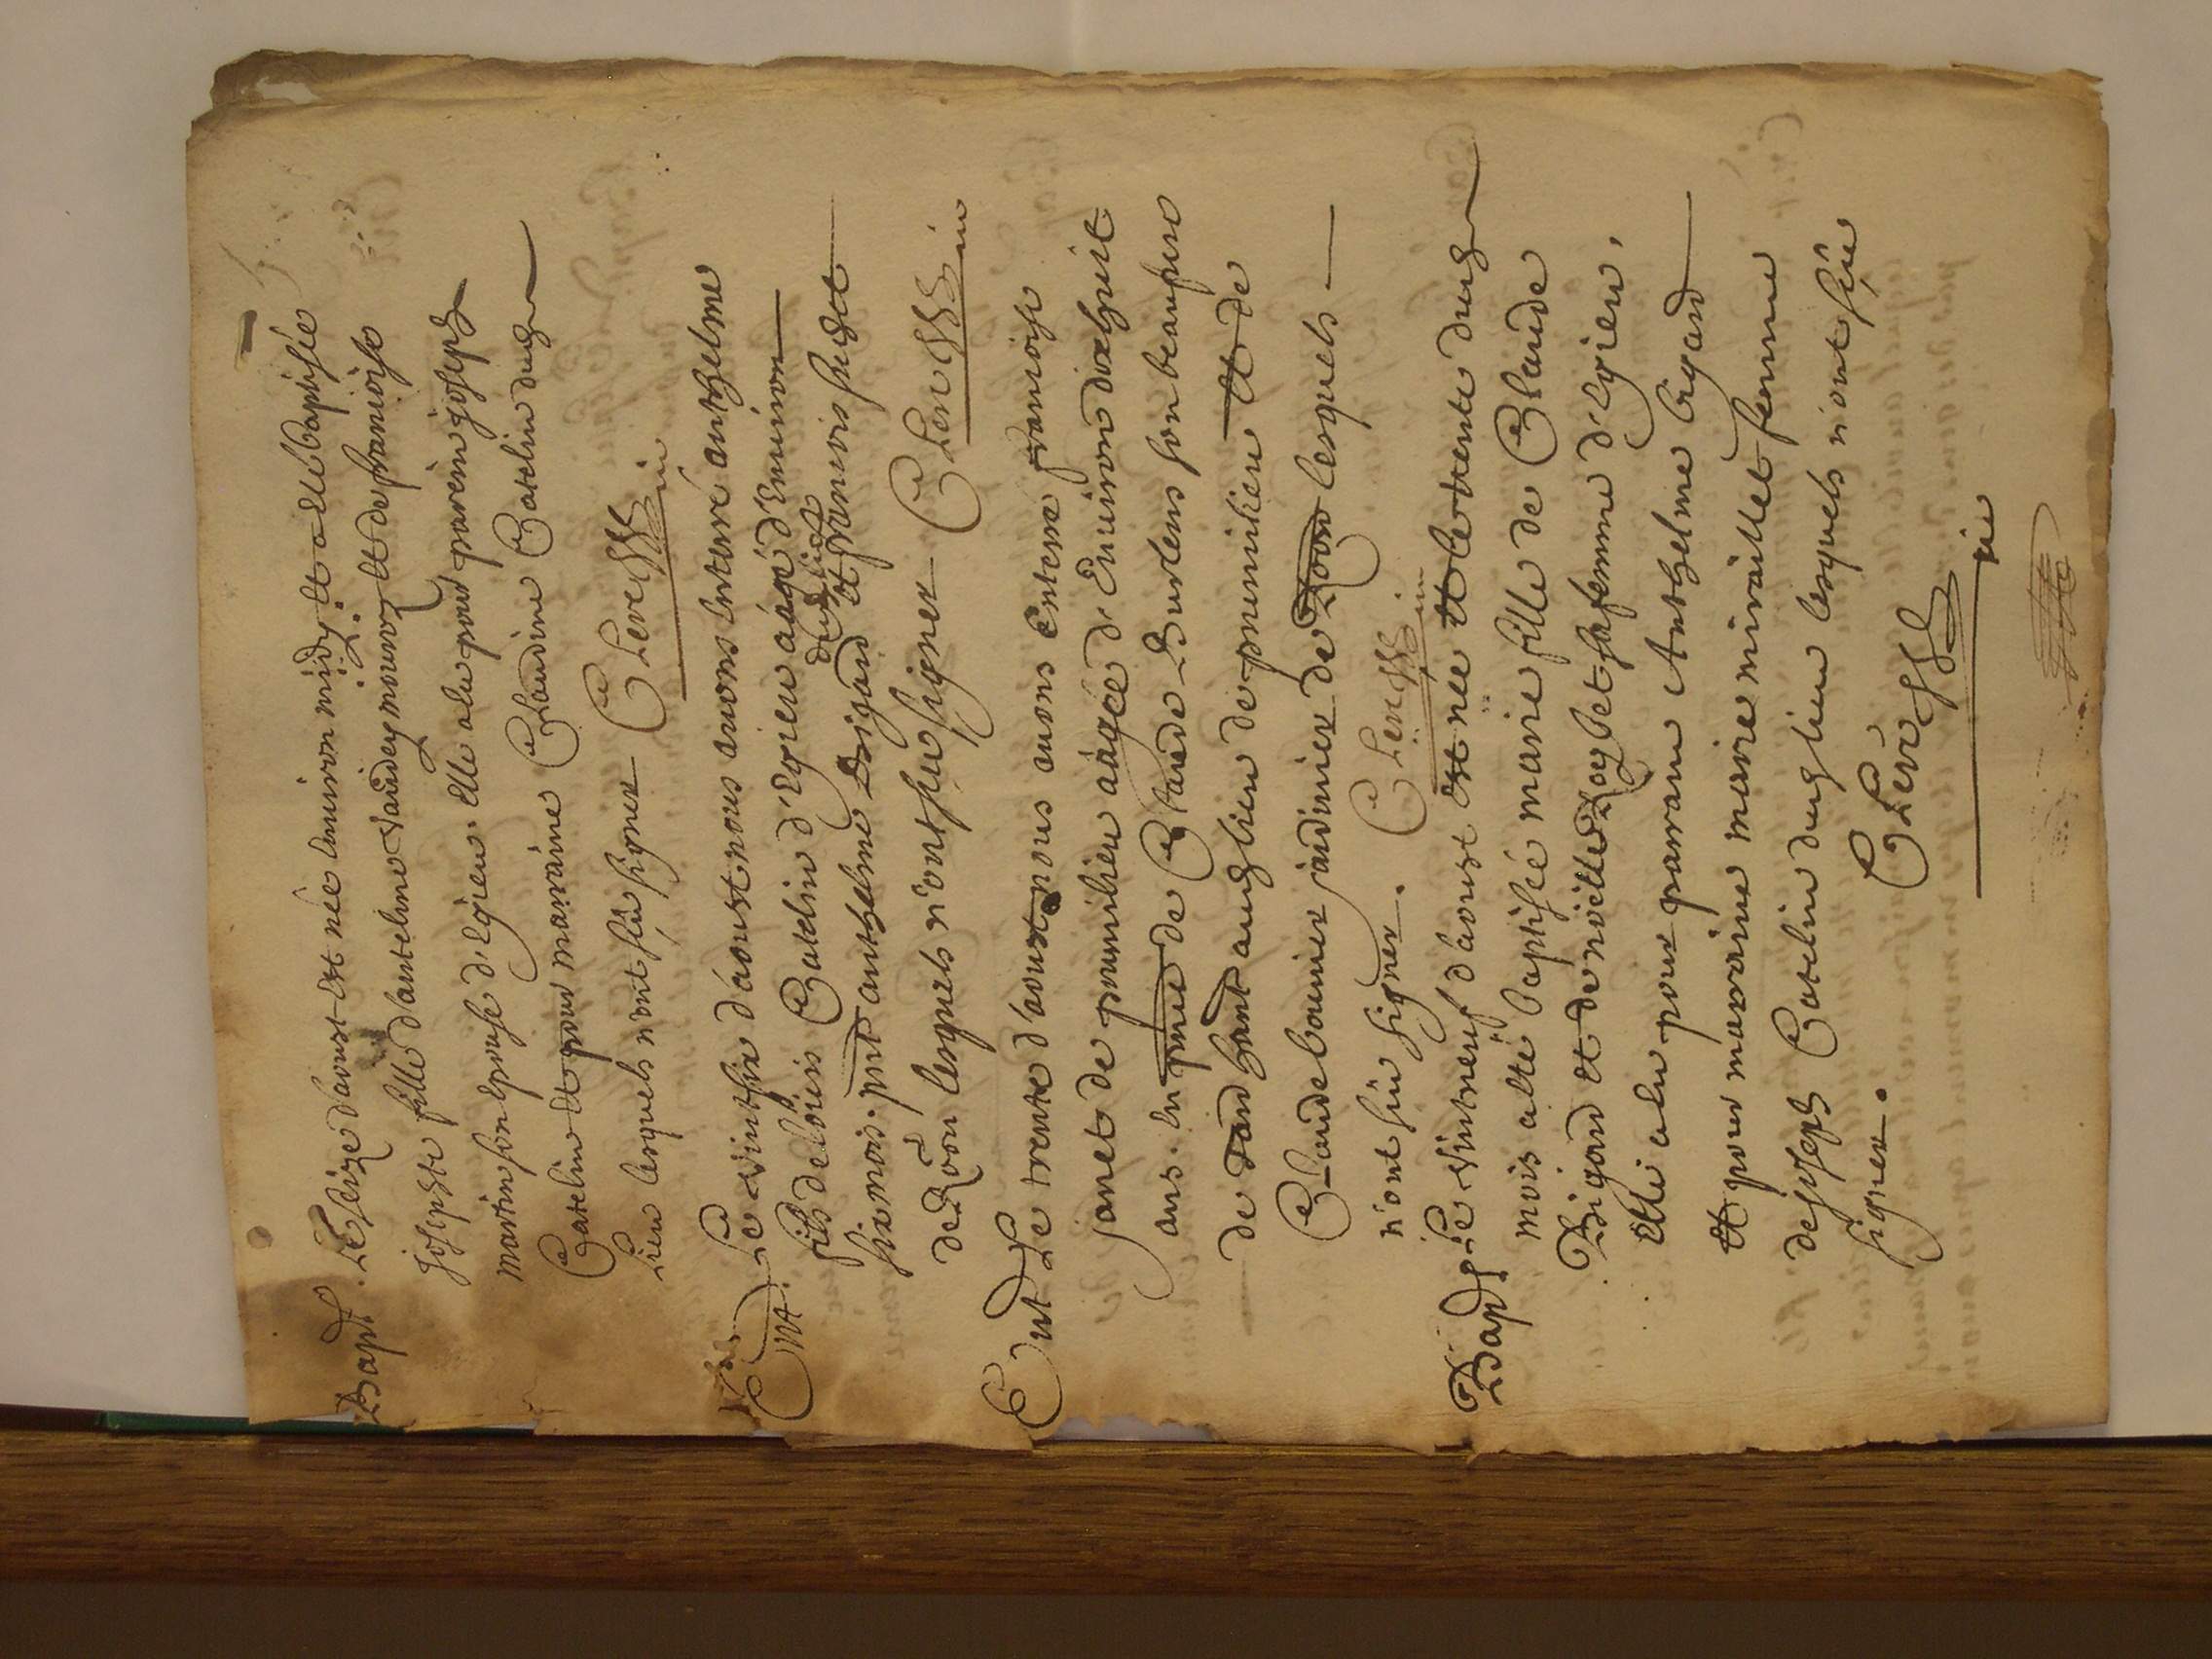 Bapt. Le seize daoust est née environ midy et a esté baptisée
josephte fille dantelme vaudey mouroz et de françoise
martin son epouse d'Epieu. elle a eu pour parein joseph
Catelin et pour marraine Claudine Catelin dudt
Lieu lesquels n'ont sçu signer C Lere
Ent. Le vintsix d'aoust nous avons enterré anthelme
fils de loüis Catelin d'Epieu aagé d'Environ
six mois. pnt anthelme Bigard et francois huget
dud lieu
de lesquels n'ont sceu signer C Lere
Ent Le trente d'aoust nous avons enterré françoise
janet de premilieu aagée d'Environ dixhuit
ans. en pnce de Claude Burlens son beaufrere
de audt lieu de premilieu et de
Claude bounier jardinier de lesquels
n'ont sçu signer. C Lere
Bapt Le vintneuf d'aoust est née et le trente dudt
mois a été baptisée marie fille de Claude
Bigard et de sa femme d'Epieu,
Elle a eu pour parrain Anthelme bigard
et pour marraine marie miraillet femme
de joseph Catelin dudt lieu lesquels n'ont sçu
signer.
C Lere